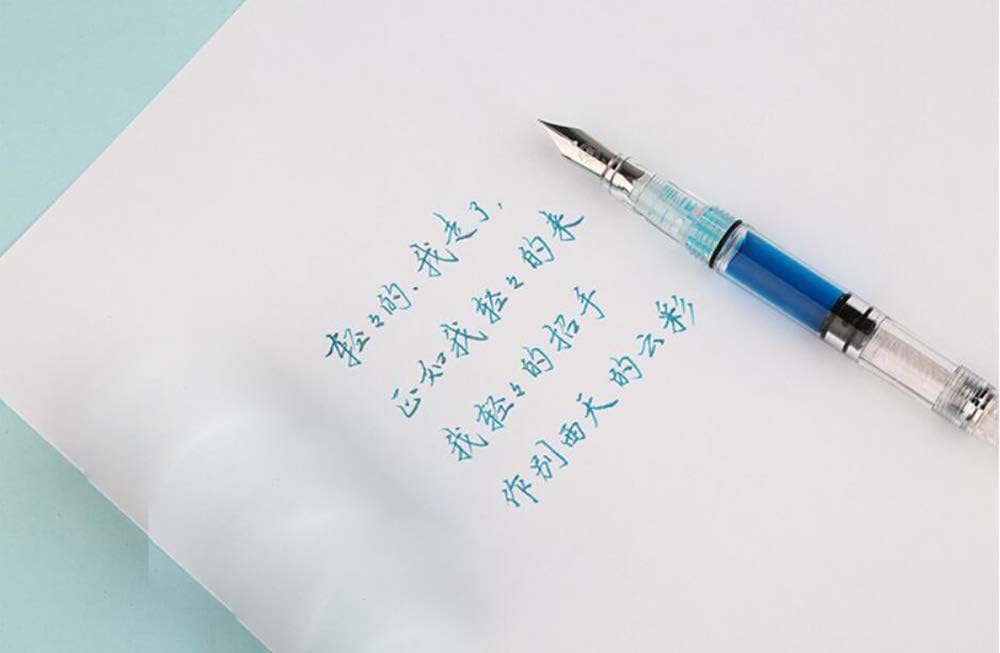 轻々的、我走了,
正如我轻々的来
我轻々的招手
作别西天的云彩